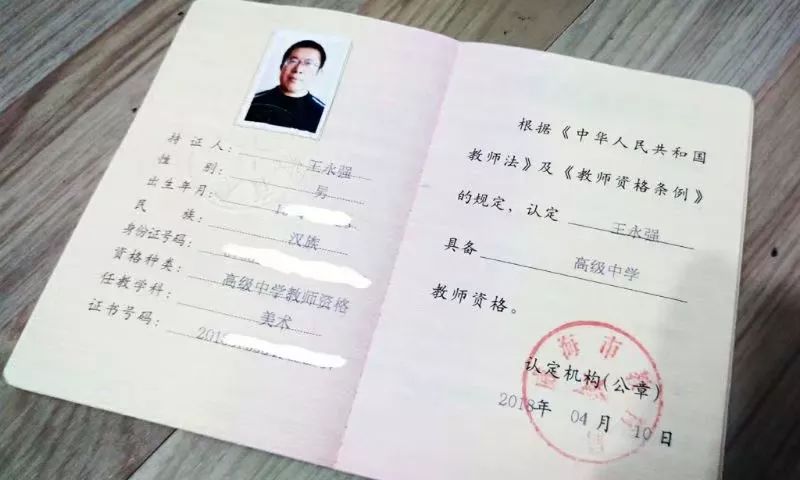 持证人：王永强
性别：男
出生年月：
民族：汉族
身份证号码：
资格种类：高级中学教师资格
任教学科：美术
证书号码：
根据《中华人民共和国
教师法》及《教师资格条例》
的规定，认定 王永强
具备 高级中学
教师资格。
认定机构(公章)
2018年 04月 10日
海市